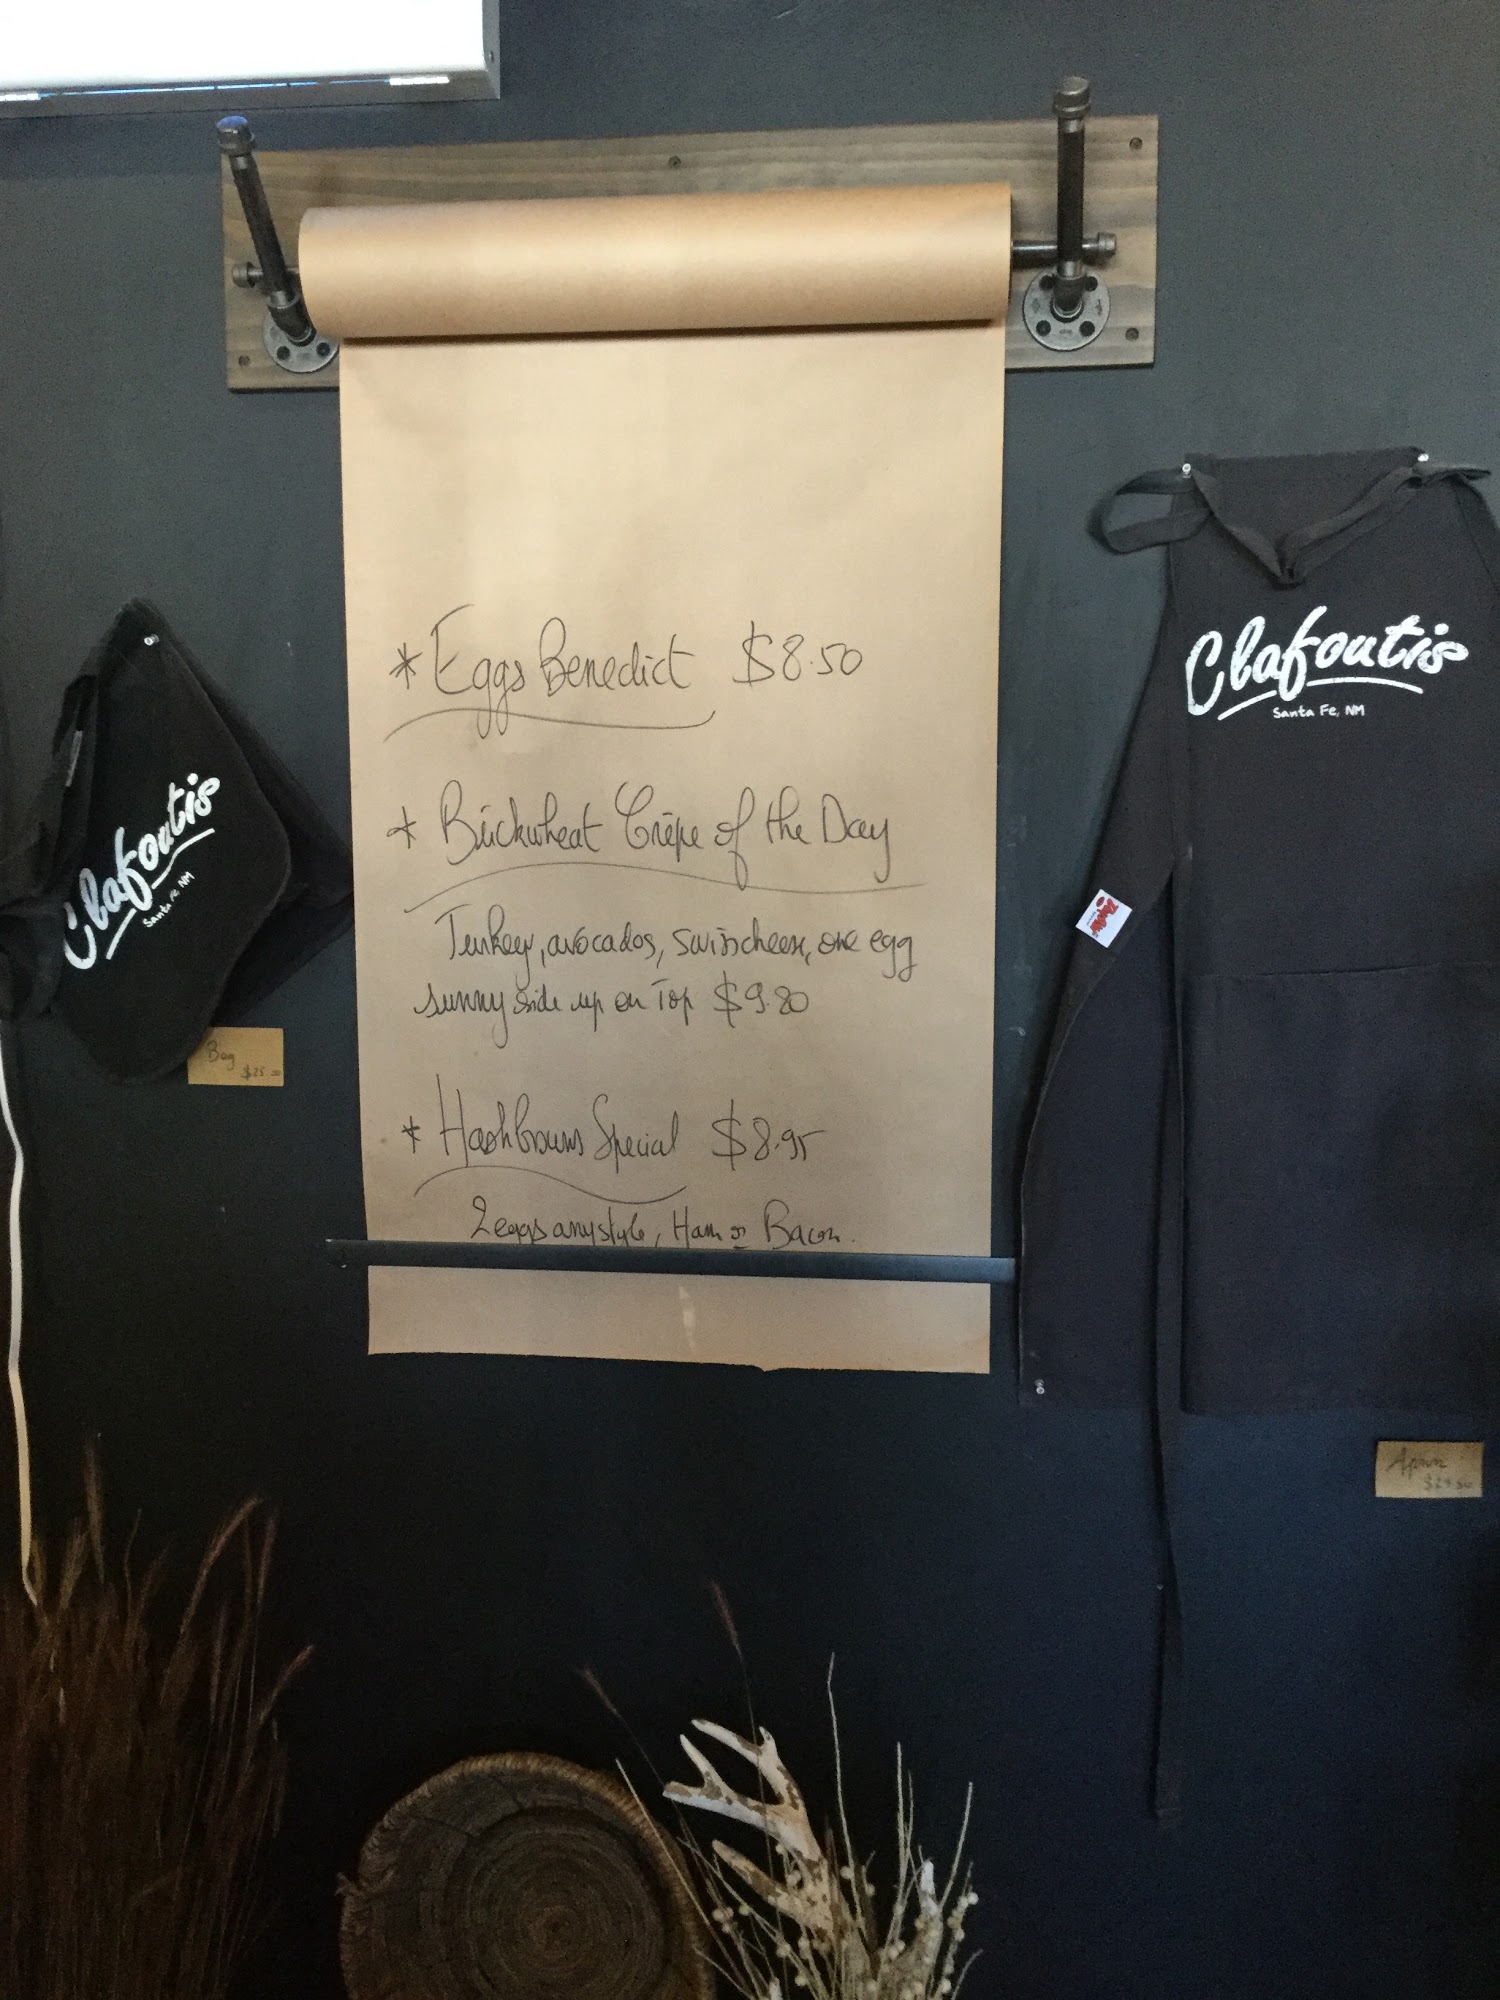 * Eggs Benedict $8.50
* Buckwheat Crêpe of the Day
Turkey, avocados, swisscheese, one egg
sunny side up on Top $9.80
* Hashbrowns Special $8.95
2 eggs any style, Ham or Bacon.
Clafoutis
Santa Fe, NM
Bag
$25.00
Clafoutis
Santa Fe, NM
Apron